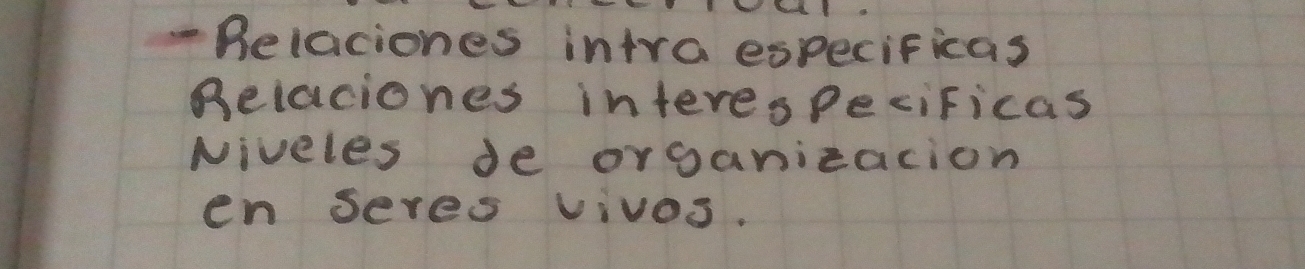 -Relaciones intra especificas
Relaciones interespecificas
Niveles de organizacion
en seres vivos.